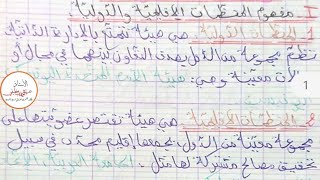 I - مفهوم المنظمات الإقليمية والدولية
1 - المنظمات الدولية: هي هيئة تتمتع بالإدارة الذاتية
تنظم مجموعة من الدول بهدف التعاون بينها في مجال أو
مجالات معينة و هي:
2 - المنظمات الإقليمية: هي هيئة تقتصر عضويتها على
مجموعة معينة من الدول يجمعها إقليم محدد في سبيل
تحقيق مصالح مشتركة لها مثل: الجامعة العربية
1